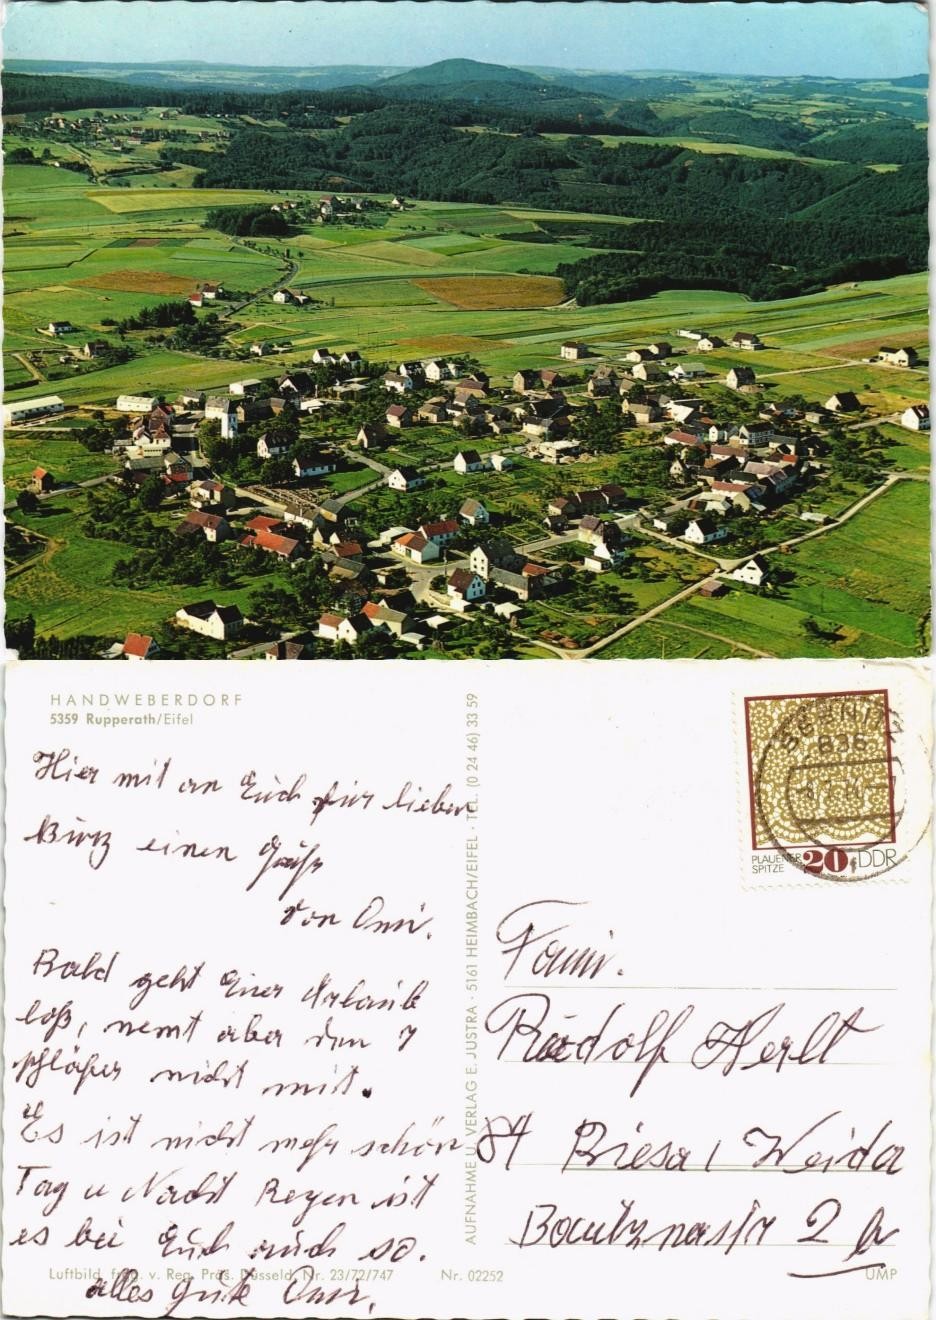 HANDWEBERDORF
5359 Rupperath/Eifel
Hier mit an Euch ihr lieben
Kurz einen Gruß
von Omi.
Bald geht Euer Urlaub
loß, nemt aber den
nicht mit.
Es ist nicht mehr schön
Tag u Nacht Regen ist
es bei Euch auch so.
alles gute Omi.
Luftbild freig. v. Reg. Präs. Düsseld. Nr. 23/72/747
Nr. 02252
UMP
AUFNAHME U. VERLAG E. JUSTRA · 5161 HEIMBACH/EIFEL · TEL. (0 24 46) 33 59
SEBNITZ
836
PLAUENER
SPITZE
20 DDR
Fami.
Rudolf Herlt
84 Riesa, Weida
Bautznerstr 2 b